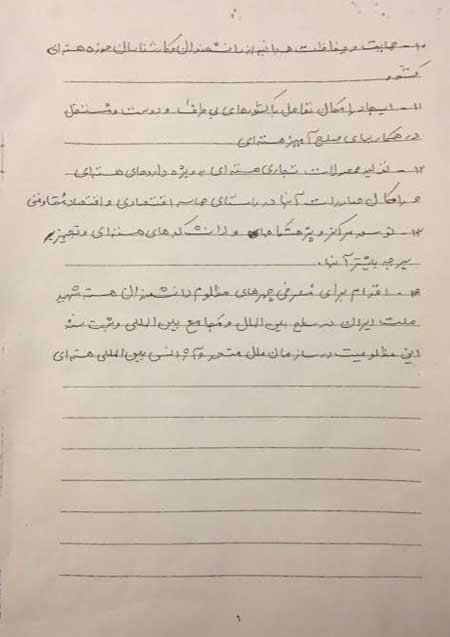 ۱۰- حمایت و حفاظت همه جانبه از دانشمندان و کارشناسان حوزه هسته ای
کشور
۱۱- ایجاد امکان تعامل با کشورهای بی طرف و دوست و مستقل
در همکاریهای صلح آمیز هسته ای
۱۲- تولید محصولات تجاری هسته ای به ویژه داروهای هسته ای
و امکان صادرات آنها در راستای حماسه اقتصادی و اقتصاد مقاومتی
۱۳- توسعه مراکز و پژوهشگاه های و دانشکده های هسته ای و تجهیز
هر چه بیشتر آنها.
۱۴- اقدام برای معرفی چهره های مظلوم دانشمندان هسته شهید
ملت ایران در سطح بین الملل و مجامع بین المللی و ثبت سند
این مظلومیت در سازمان ملل متحد و آژانس بین المللی هسته ای
۶